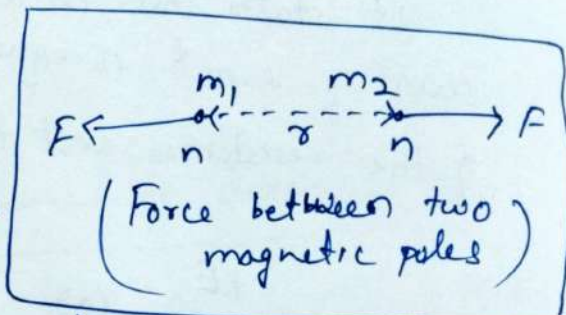 m₁ m₂
F r F
n n
(Force between two
magnetic poles)